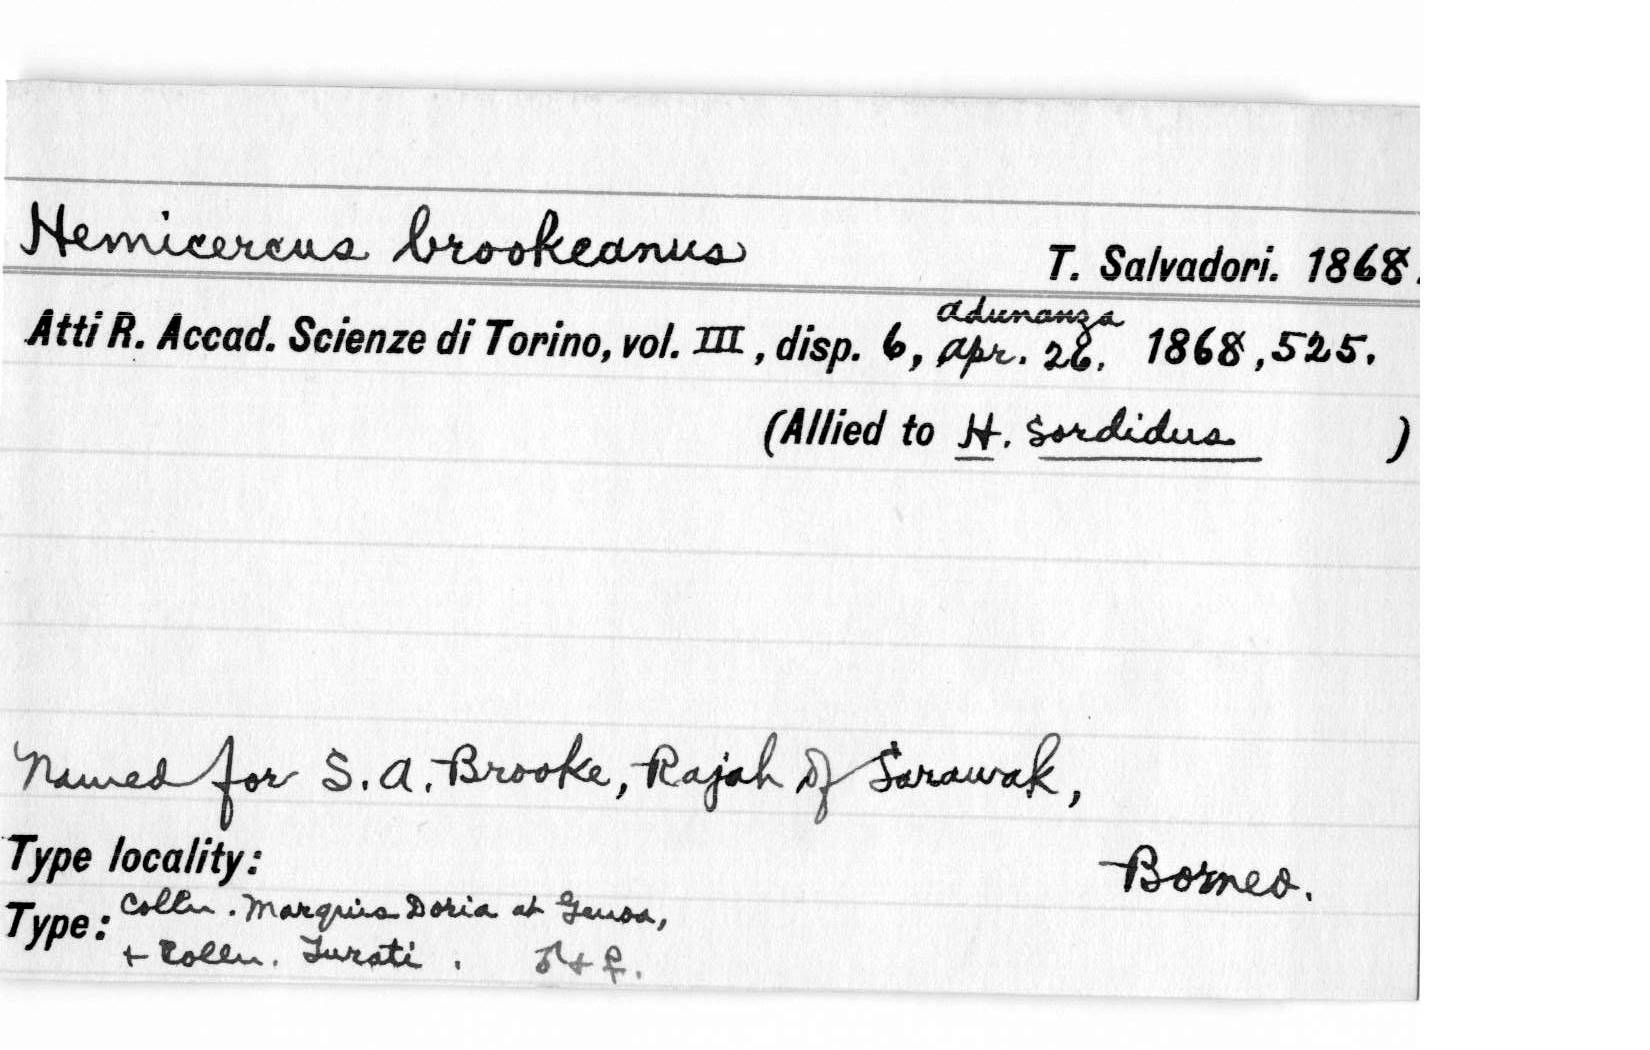 Hemicercus brookeanus T. Salvadori. 1868.
adunanza
Atti R. Accad. Scienze di Torino, vol. III, disp. 6, Apr. 26. 1868, 525.
(Allied to H. sordidus )
Named for S. A. Brooke, Rajah of Sarawak,
Type locality: Borneo.
Type: Colln. Marquis Doria at Genoa,
+ Colln. Turati. ♂ + ♀.